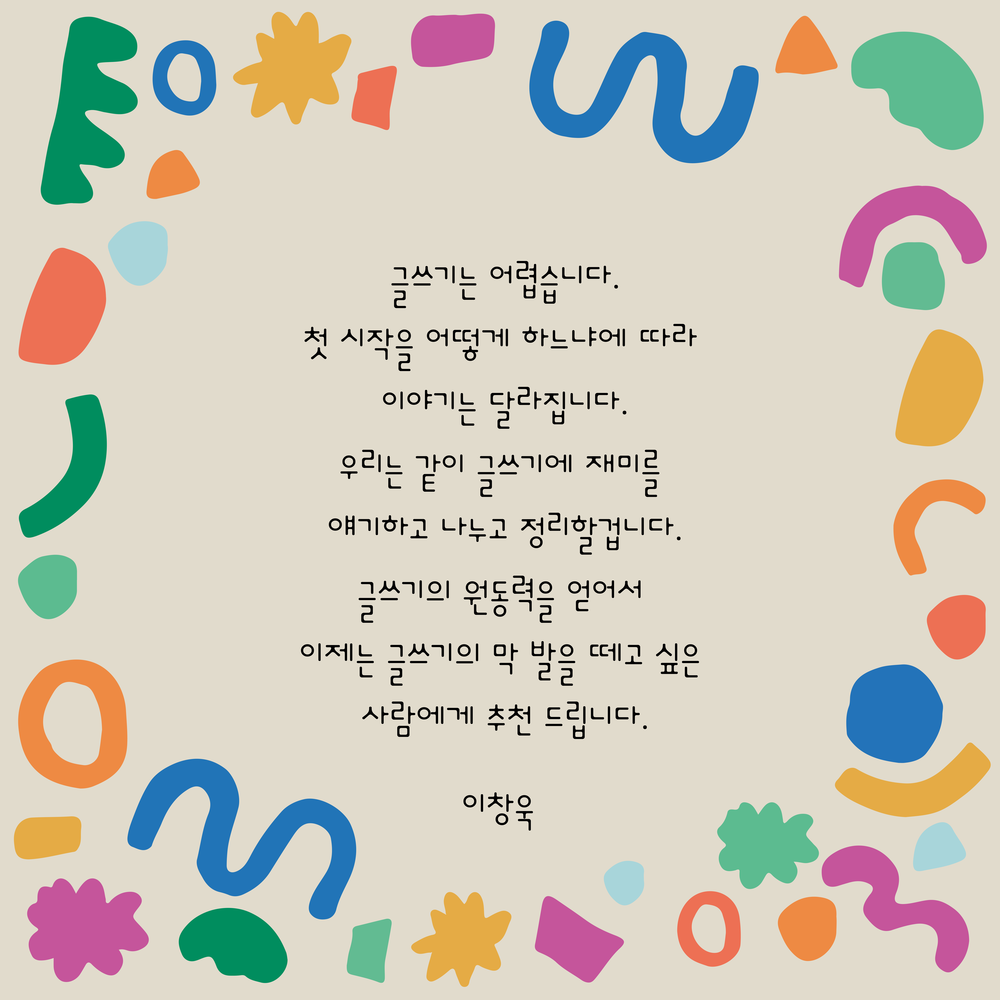 글쓰기는 어렵습니다.
첫 시작을 어떻게 하느냐에 따라
이야기는 달라집니다.
우리는 같이 글쓰기에 재미를
얘기하고 나누고 정리할겁니다.
글쓰기의 원동력을 얻어서
이제는 글쓰기의 막 발을 떼고 싶은
사람에게 추천 드립니다.
이창욱